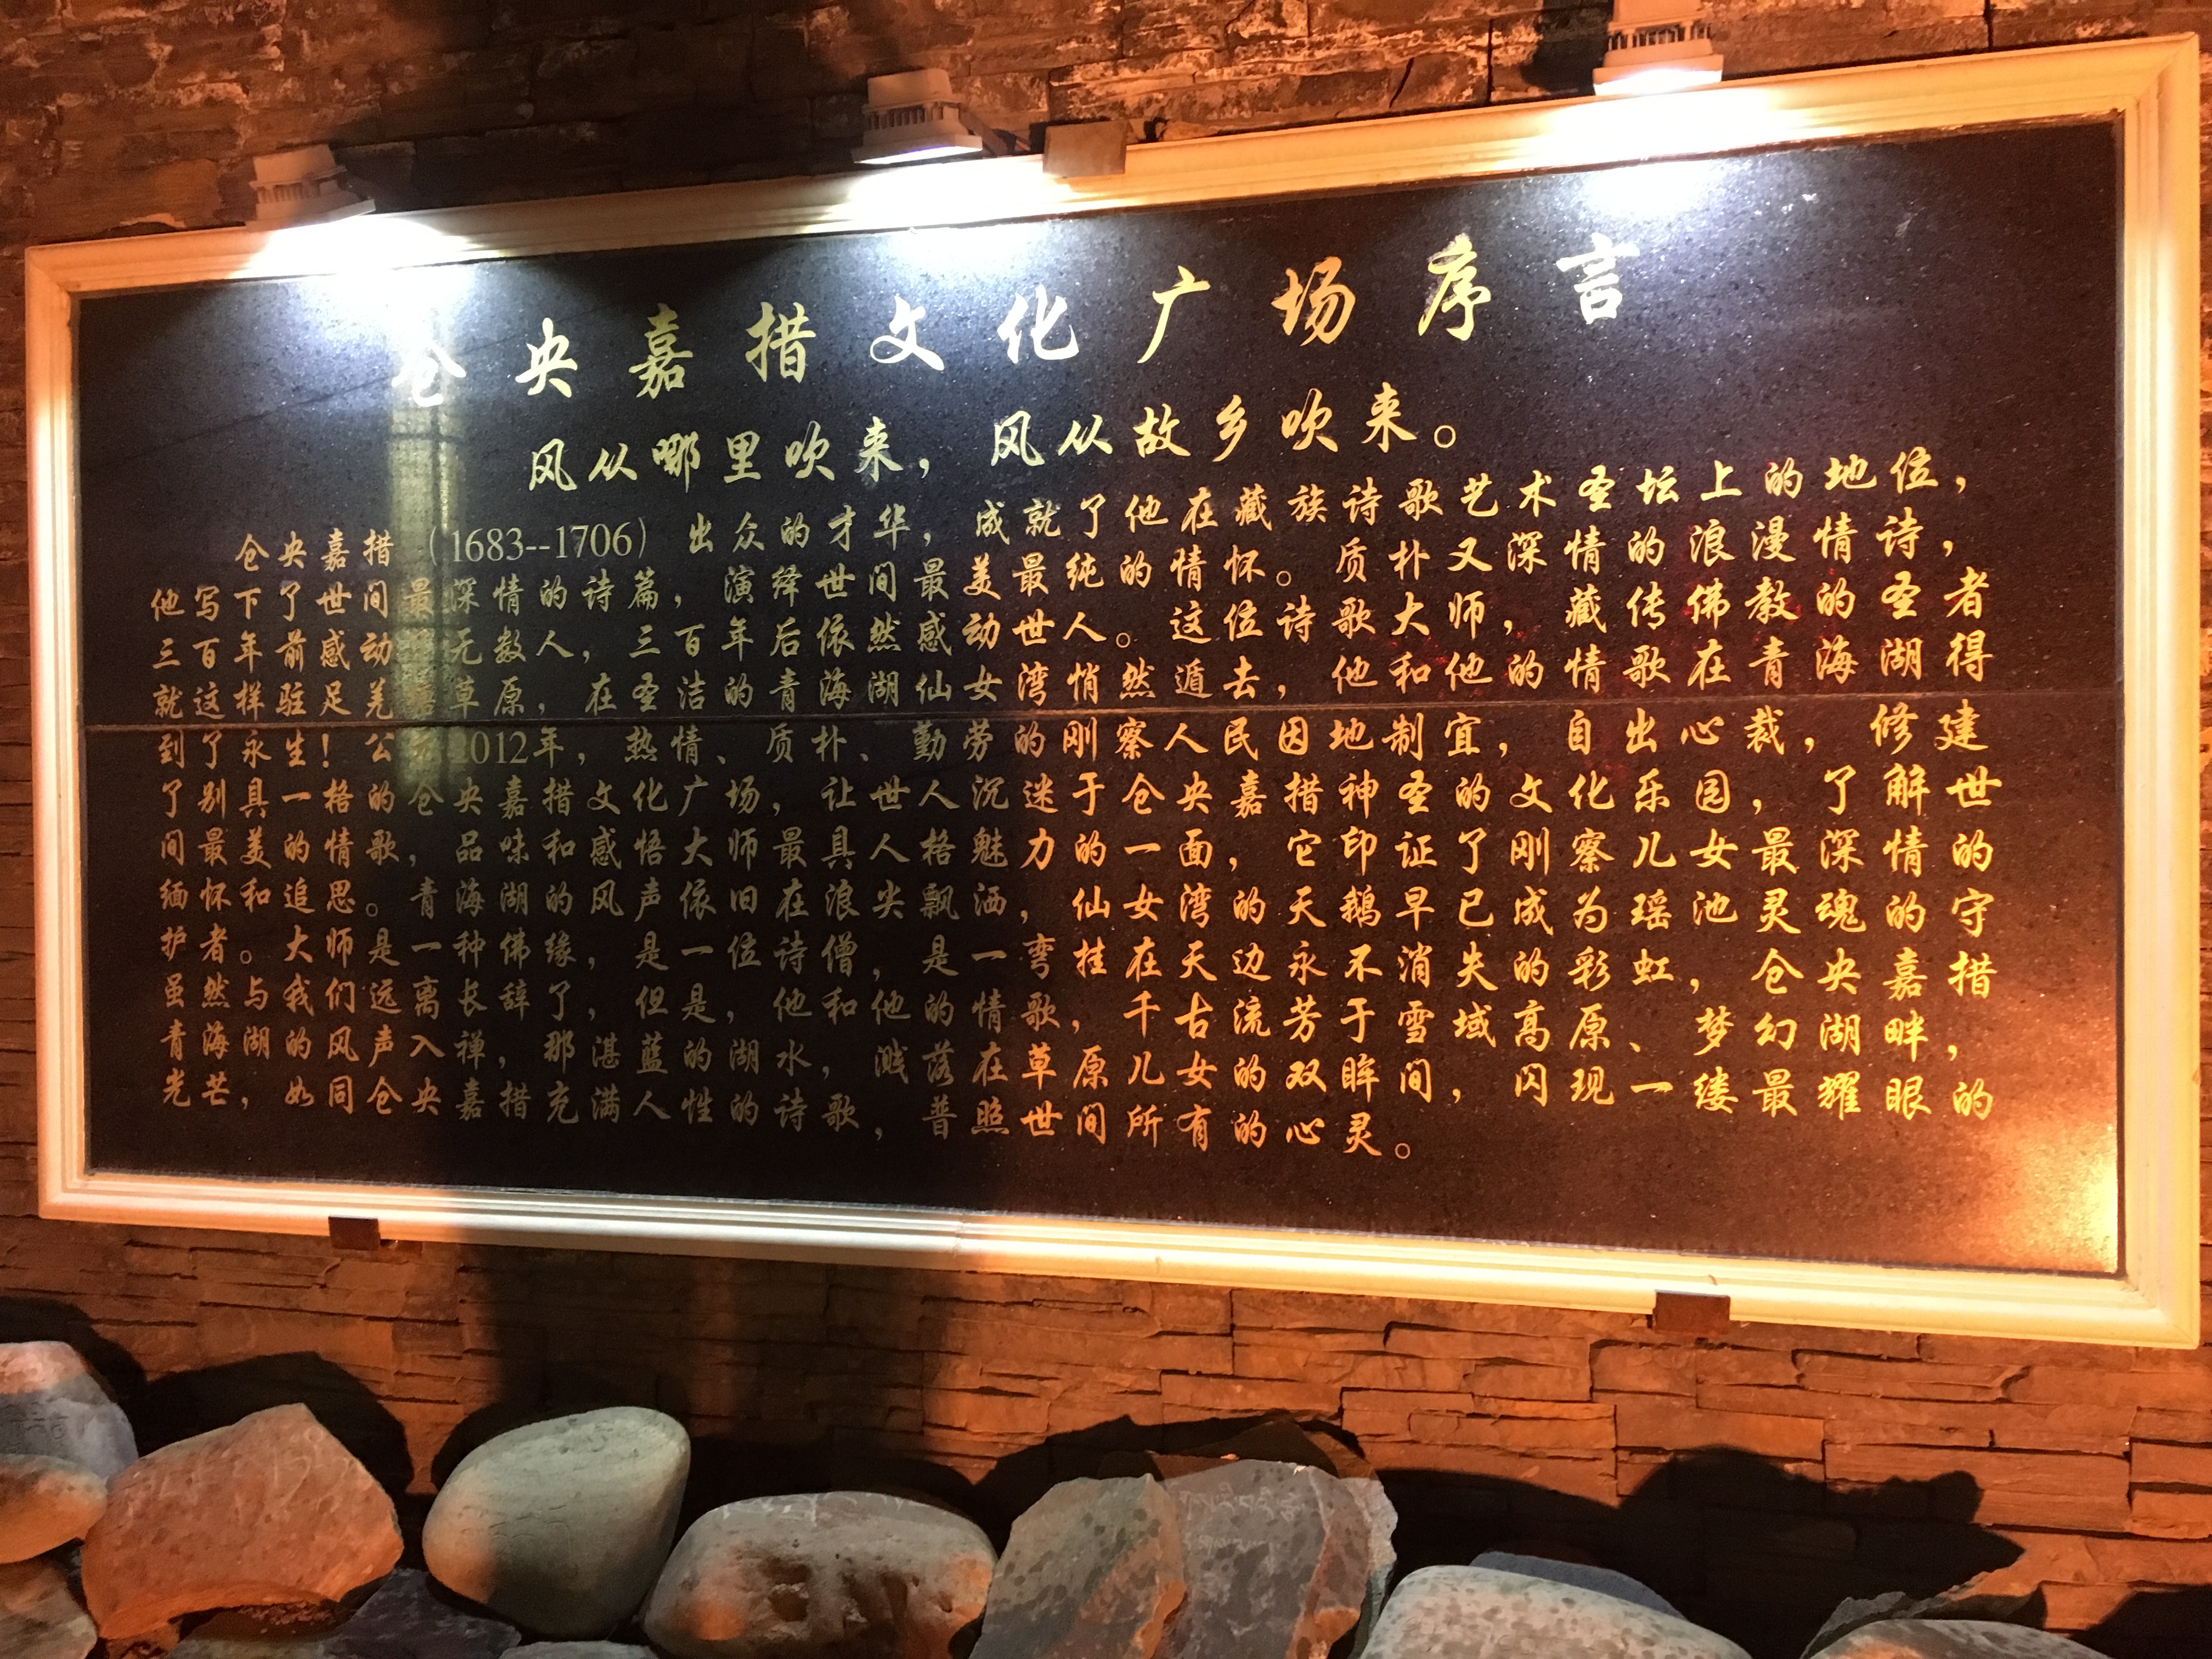 仓央嘉措文化广场序言
风从哪里吹来，风从故乡吹来。
仓央嘉措（1683--1706）出众的才华，成就了他在藏族诗歌艺术圣坛上的地位，
他写下了世间最深情的诗篇，演绎世间最美最纯的情怀。质朴又深情的浪漫情诗，
三百年前感动 无数人，三百年后依然感动世人。这位诗歌大师，藏传佛教的圣者
就这样驻足羌塘草原，在圣洁的青海湖仙女湾悄然遁去，他和他的情歌在青海湖得
到了永生！公元2012年，热情、质朴、勤劳的刚察人民因地制宜，自出心裁，修建
了别具一格的仓央嘉措文化广场，让世人沉迷于仓央嘉措神圣的文化乐园，了解世
间最美的情歌，品味和感悟大师最具人格魅力的一面，它印证了刚察儿女最深情的
缅怀和追思。青海湖的风声依旧在浪尖飘洒，仙女湾的天鹅早已成为瑶池灵魂的守
护者。大师是一种佛缘，是一位诗僧，是一弯挂在天边永不消失的彩虹，仓央嘉措
虽然与我们远离长辞了，但是，他和他的情歌，千古流芳于雪域高原、梦幻湖畔，
青海湖的风声入禅，那湛蓝的湖水，溅落在草原儿女的双眸间，闪现一缕最耀眼的
光芒，如同仓央嘉措充满人性的诗歌，普照世间所有的心灵。